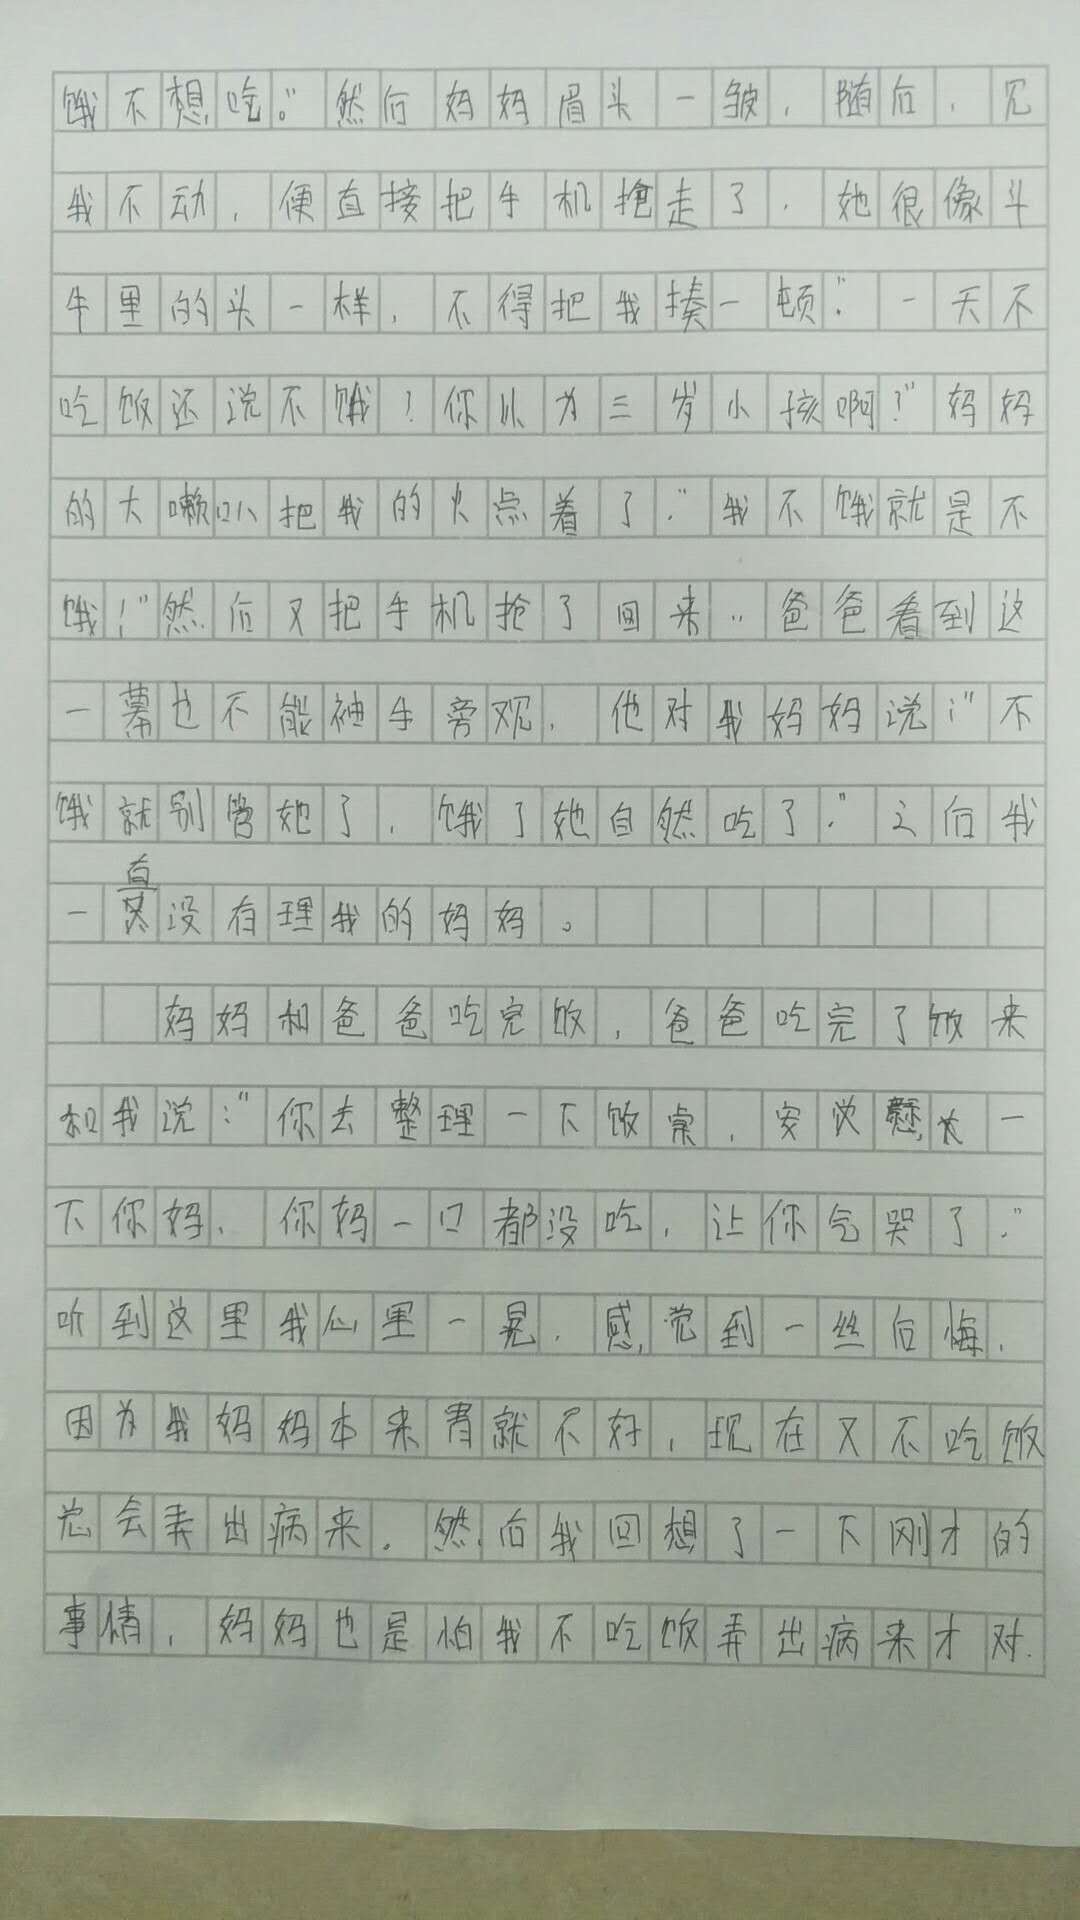 饿不想吃。”然后妈妈眉头一皱，随后，见
我不动，便直接把手机抢走了，她很像斗
牛里的头一样，不得把我揍一顿“一天不
吃饭还说不饿！你以为三岁小孩啊？”妈妈
的大嗽叭把我的火点着了“我不饿就是不
饿！”然后又把手机抢了回来..爸爸看到这
一幕也不能袖手旁观，他对我妈妈说：“不
饿就别管她了，饿了她自然吃了。”之后我
一直没有理我的妈妈。
妈妈和爸爸吃完饭，爸爸吃完了饭来
和我说：“你去整理一下饭桌，安慰一
下你妈，你妈一口都没吃，让你气哭了。”
听到这里我心里一晃，感觉到一丝后悔，
因为我妈妈本来胃就不好，现在又不吃饭
总会弄出病来。然后我回想了一下刚才的
事情，妈妈也是怕我不吃饭弄出病来才对